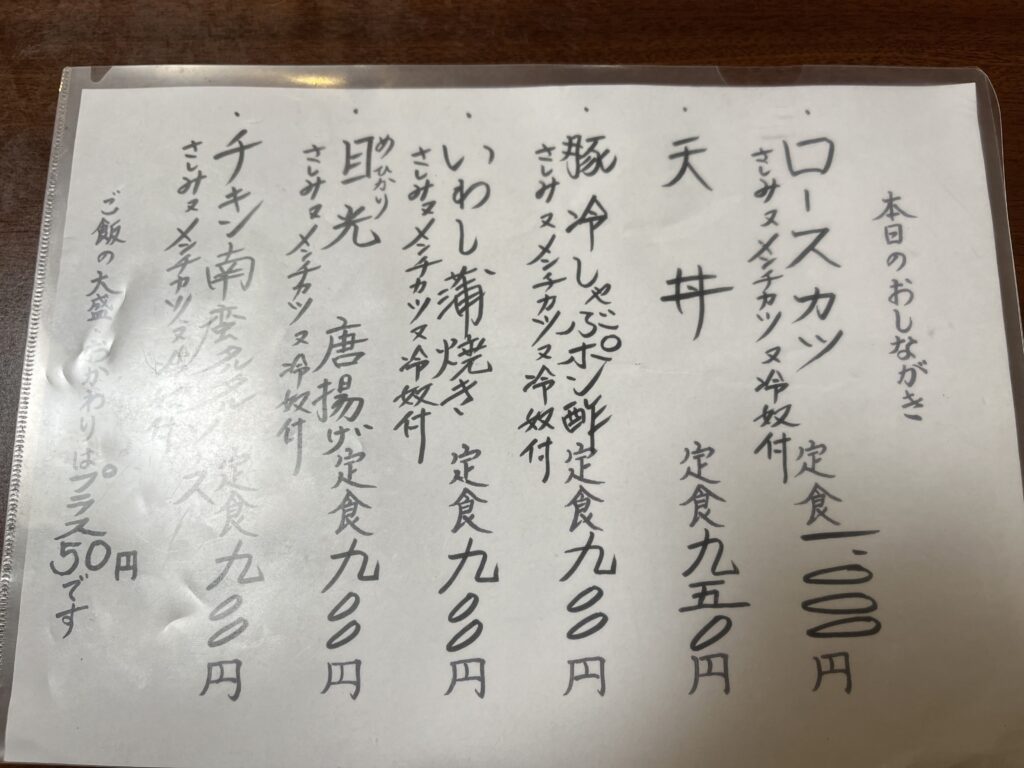 本日のおしながき
・ロースカツ 定食一、000円
さしみ又メンチカツ又冷奴付
・天丼 定食九五0円
・豚冷しゃぶポン酢定食九00円
さしみ又メンチカツ又冷奴付
・いわし蒲焼き 定食九00円
さしみ又メンチカツ又冷奴付
めひかり
・目光 唐揚げ定食九00円
さしみ又メンチカツ又冷奴付
・チキン南蛮タルタルソース 定食九00円
さしみ又メンチカツ又 付
ご飯の大盛・おかわりはプラス50円です